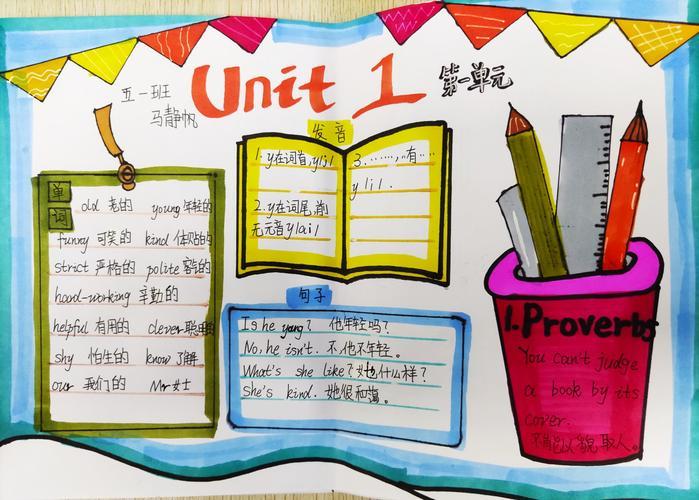 Unit 1 第一单元
五一班
马静帆
单词
old 老的 young 年轻的
funny 可笑的 kind 体贴的
strict 严格的 polite 客的
hard-working 辛勤的
helpful 有用的 clever 聪明的
shy 怕生的 know 了解
our 我们的 Mr 女士
发音
1. y在词首, y/j/
2. y在词尾,前
无元音y/ai/
3. ……,有…
y /i/.
句子
Is he young? 他年轻吗?
No, he isn't. 不,他不年轻。
What's she like? 她什么样?
She's kind. 她很和蔼。
1. Proverbs
You can't judge
a book by its
cover.
不能以貌取人。